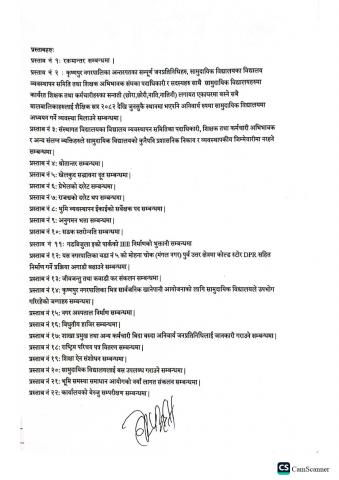 प्रस्तावहरुः
प्रस्ताव नं १: रकमान्तर सम्बन्धमा |
प्रस्ताव नं २ : कृष्णपुर नगरपालिका अन्तरगतका सम्पूर्ण जनप्रतिनिधिहरु, सामुदायिक विद्यालयका विद्यालय
व्यवस्थापन समिति तथा शिक्षक अभिभावक संघका पदाधिकारी र सदस्यहरु साथै सामुदायिक विद्यालयहरुमा
कार्यरत शिक्षक तथा कर्मचारीहरुका सन्तती (छोरा,छोरी,नाति,नातिनी) लगायत एकाघरमा बस्ने सबै
बालबालिकाहरुलाई शैक्षिक सत्र २०८२ देखि जुनसुकै स्थानमा भएपनि अनिवार्य रुपमा सामुदायिक विद्यालयमा
अध्ययन गर्ने व्यवस्था मिलाउने सम्बन्धमा |
प्रस्ताव नं ३: संस्थागत विद्यालयका विद्यालय व्यवस्थापन समितिका पदाधिकारी, शिक्षक तथा कर्मचारी अभिभावक
र अन्य संलग्न व्यक्तिहरुले सामुदायिक विद्यालयको कुनैपनि प्रशासनिक निकाय र व्यवस्थापकीय जिम्मेवारीमा नरहने
सम्बन्धमा |
प्रस्ताव नं ४: स्रोतान्तर सम्बन्धमा |
प्रस्ताव नं ५: खेलकुद सद्भावना दूत सम्बन्धमा |
प्रस्ताव नं ६: ग्रेभेलको दररेट सम्बन्धमा |
प्रस्ताव नं ७: राजश्वको दररेट थप सम्बन्धमा |
प्रस्ताव नं ८: भूमि व्यवस्थापन ईकाईको सर्वेक्षक पद सम्बन्धमा |
प्रस्ताव नं ९: अनुगमन भत्ता सम्बन्धमा |
प्रस्ताव नं १०: सडक स्तरोन्नति सम्बन्धमा |
प्रस्ताव नं ११: गडविजुला इको पार्कको IEE निर्माणको भुक्तानी सम्बन्धमा
प्रस्ताव नं १२: यस नगरपालिका वडा नं ५ को मोहना चोक (मंगल नगर) पुर्व उत्तर क्षेत्रमा कोल्ड स्टोर DPR सहित
निर्माण गर्ने प्रक्रिया अगाडी बढाउने सम्बन्धमा |
प्रस्ताव नं १३: जीवजन्तु तथा कवाडी कर संकलन सम्बन्धमा |
प्रस्ताव नं १४: कृष्णपुर नगरपालिका भित्र सार्वजनिक खानेपानी आयोजनाको लागि सामुदायिक विद्यालयले उपभोग
गरिरहेको जग्गाहरु सम्बन्धमा |
प्रस्ताव नं १५: नगर अस्पताल निर्माण सम्बन्धमा |
प्रस्ताव नं १६: विधुतीय हाजिर सम्बन्धमा |
प्रस्ताव नं १७: शाखा प्रमुख तथा अन्य कर्मचारी बिदा बस्दा अनिवार्य जनप्रतिनिधिलाई जानकारी गराउने सम्बन्धमा |
प्रस्ताव नं १८: राष्ट्रिय परिचय पत्र वितरण सम्बन्धमा |
प्रस्ताव नं १९: शिक्षा ऐन संशोधन सम्बन्धमा |
प्रस्ताव नं २०: सामुदायिक विद्यालयलाई बस उपलब्ध गराउने सम्बन्धमा |
प्रस्ताव नं २१: भूमि समस्या समाधान आयोगको नयाँ लागत संकलन सम्बन्धमा |
प्रस्ताव नं २२: कार्यालयको बेरुजु सम्परीक्षण सम्बन्धमा |
CS CamScanner